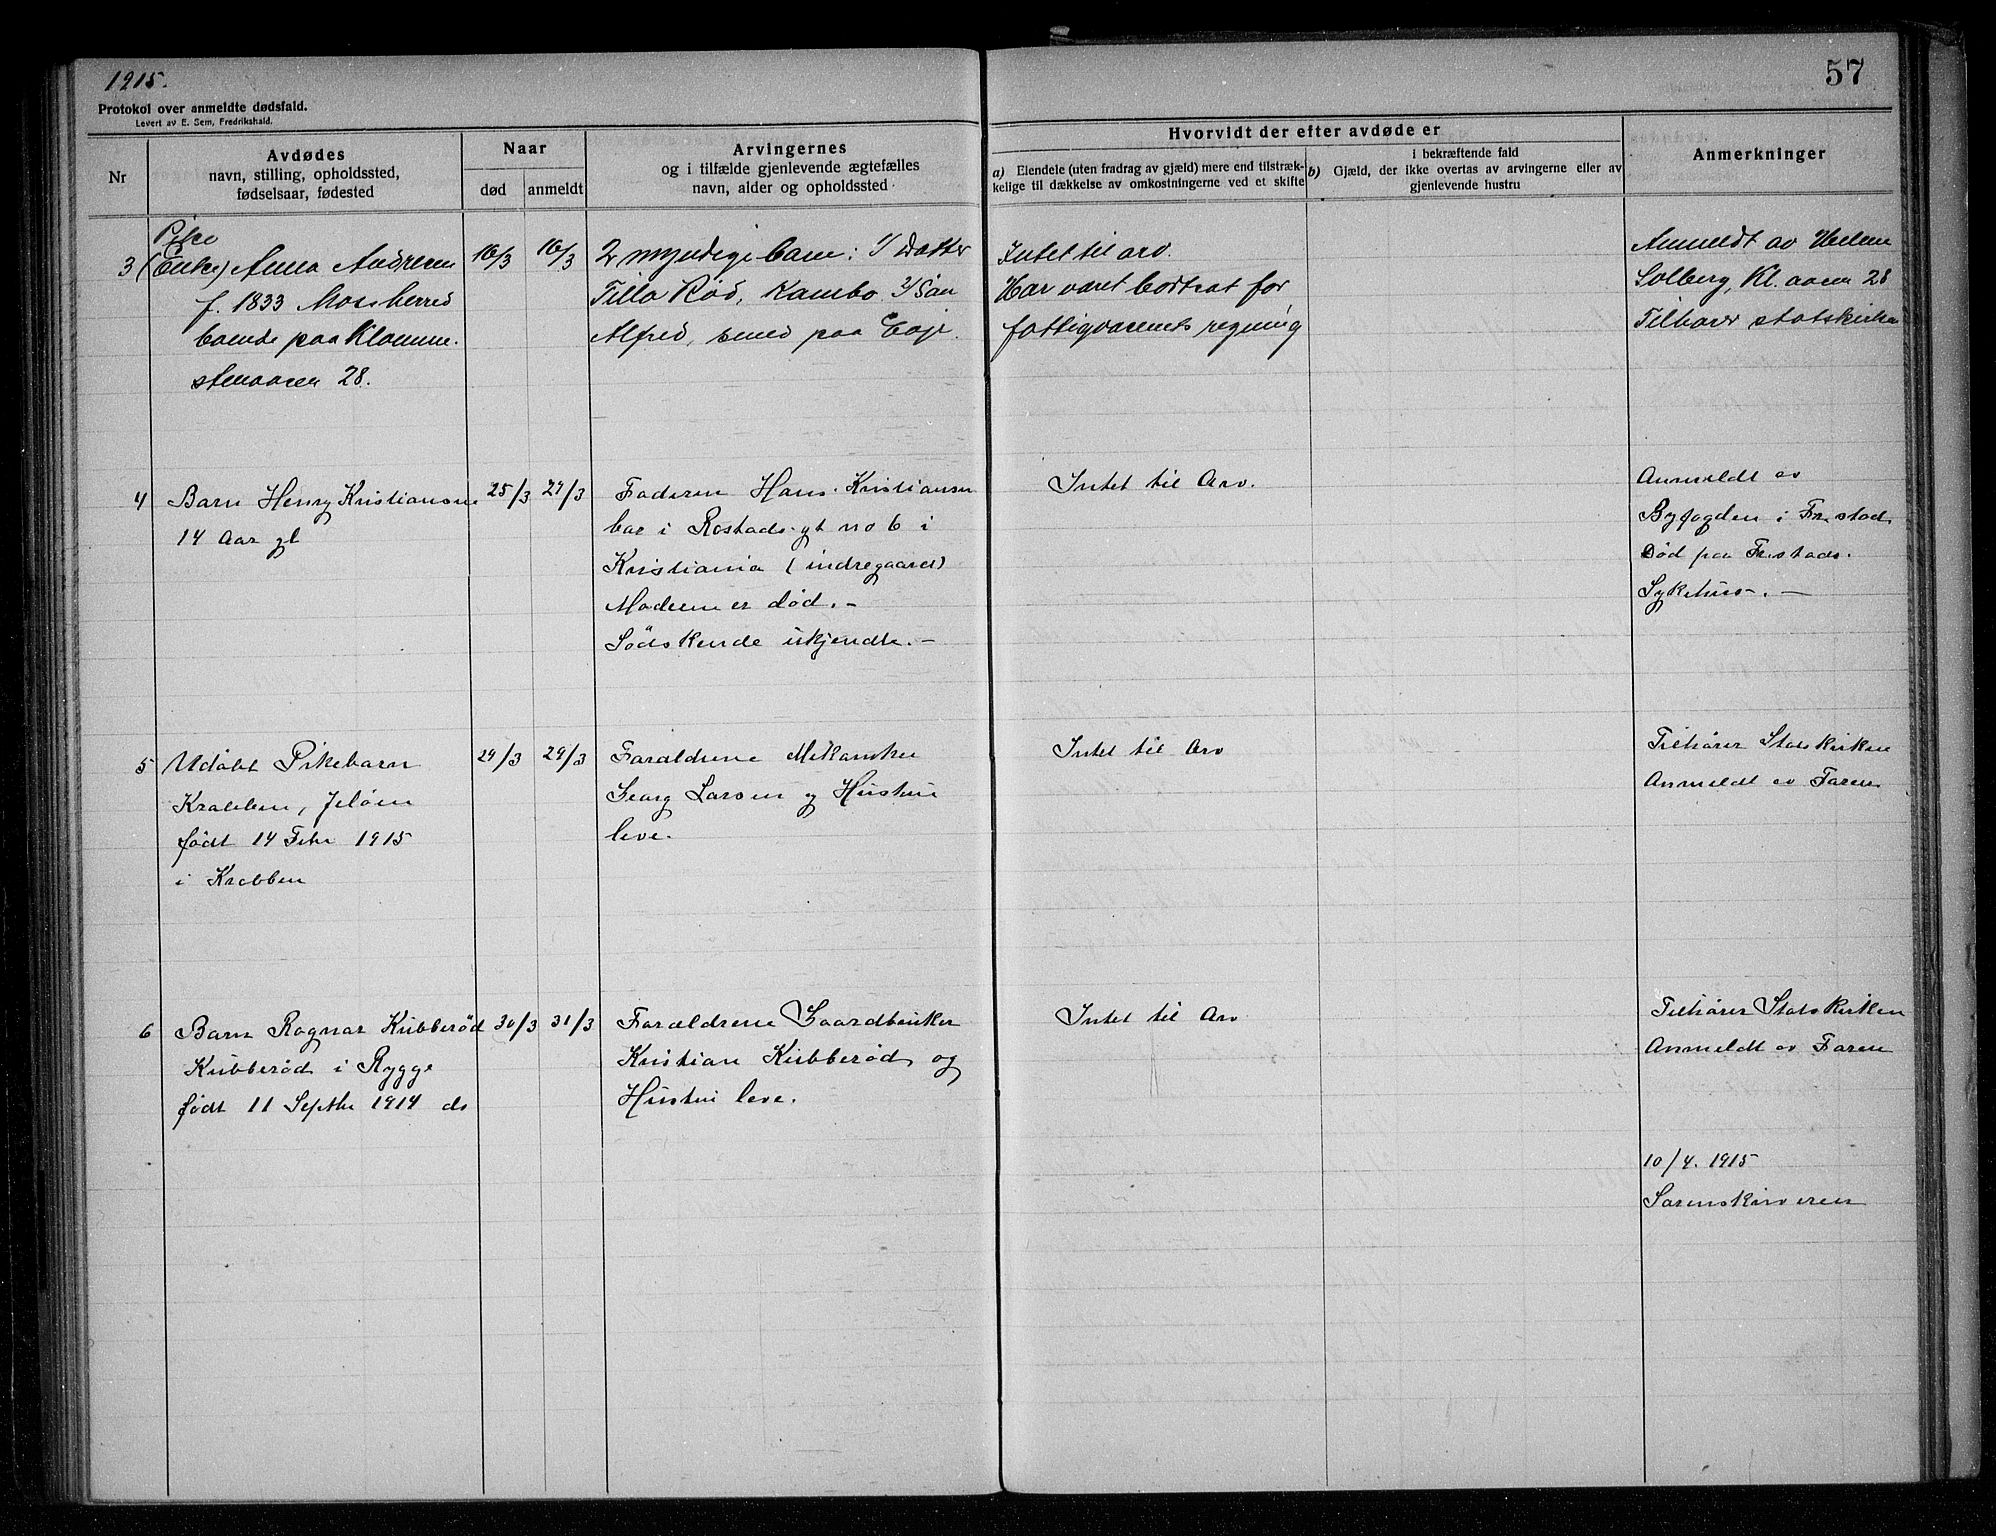 1915.
57
Protokol over anmeldte dødsfald.
Levert av E. Sem, Fredrikshald.
Nr
Avdødes
navn, stilling, opholdssted,
fødselsaar, fødested
Naar
død
anmeldt
Arvingernes
og i tilfælde gjenlevende ægtefælles
navn, alder og opholdssted
Hvorvidt der efter avdøde er
a) Eiendele (uten fradrag av gjæld) mere end tilstræk-
kelige til dækkelse av omkostningerne ved et skifte
i bekræftende fald
b) Gjæld, der ikke overtas av arvingerne eller av
gjenlevende hustru
Anmerkninger
Pike
3 (Enke) Anna Andresen
f. 1833 Moss herred
boende paa Klomme-
stenaasen 28.
16/3 16/3
2 myndige barn: 1/ Datter
Tilla Rød, Kambo 2/ Søn
Alfred, smed paa Eøje.
Intet til arv.
Har været bortsat for
fattigvæsenets regning
Anmeldt av Helene
Solberg, Kl. aasen 28
Tilhører statskirken
4 Barn Henry Kristiansen
14 Aar gl
25/3 27/3
Faderen Hans Kristiansen
bor i Rostads gt no 6 i
Kristiania (indregaarel)
Moderen er død. -
Södskende ukjendte. -
Intet til Arv.
Anmeldt av
Byfogden i Fr.stad
Død paa Fr.stads
Sykehus. -
5 Udøbt Pikebarn
Krabben, Jeløen
født 14 Febr 1915
i Krabben
29/3 29/3
Forældrene Mekaniker
Georg Larsen og Hustru
leve.
Intet til Arv
Tilhører Statskirken
Anmeldt av Faren
6 Barn Ragnar Kubberød
Kubberød i Rygge
født 11 Septbr 1914 do
30/3 31/3
Forældrene Gaardbruker
Kristian Kubberød og
Hustru leve.
Intet til Arv
Tilhører Statskirken
Anmeldt av Faren
10/4. 1915
Sorenskriveren